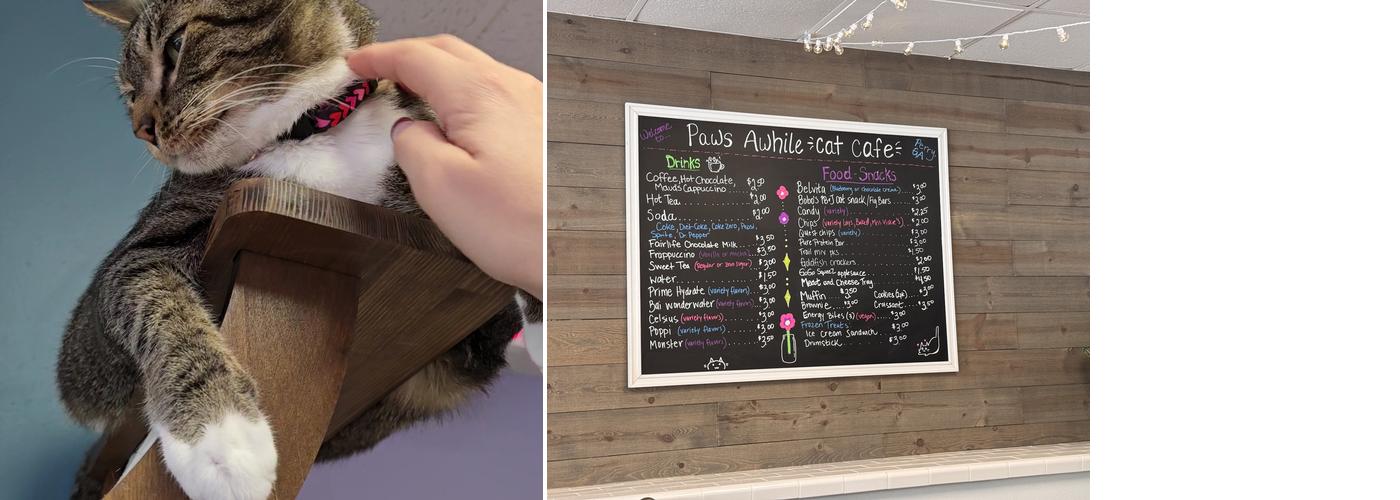 Welcome to...
Paws Awhile Cat Cafe
Perry, GA
Drinks
Coffee, Hot Chocolate, $2.50
Mauds Cappuccino
Hot Tea $2.00
Soda $2.00
Coke, Diet-Coke, Coke Zero, Pepsi,
Sprite, Dr. Pepper
Fairlife Chocolate Milk $3.50
Frappuccino (vanilla or mocha) $3.50
Sweet Tea (Regular or zero sugar) $3.00
Water $1.50
Prime Hydrate (variety flavors) $3.00
Bai wonderwater (variety flavors) $3.00
Celsius (variety flavors) $3.00
Poppi (variety flavors) $3.00
Monster (variety flavors) $3.50
Food-Snacks
Belvita (Blueberry or chocolate creme) $3.00
Bobo's PB+J Oat snack/Fig Bars $3.00
Candy (variety) $2.25
Chips (variety Lays, Baked, Miss Vickie's) $3.00
Quest chips (variety) $3.00
Pure Protein Bar $3.00
Trail mix $1.50
Goldfish crackers $2.00
GoGo Squeez applesauce $1.50
Meat and Cheese Tray $4.50
Muffin $3.50 Cookies (2pk) $3.00
Brownie $3.00 Croissant $3.50
Energy Bites (3) (vegan) $3.00
Frozen Treats
Ice Cream Sandwich $3.00
Drumstick $3.00